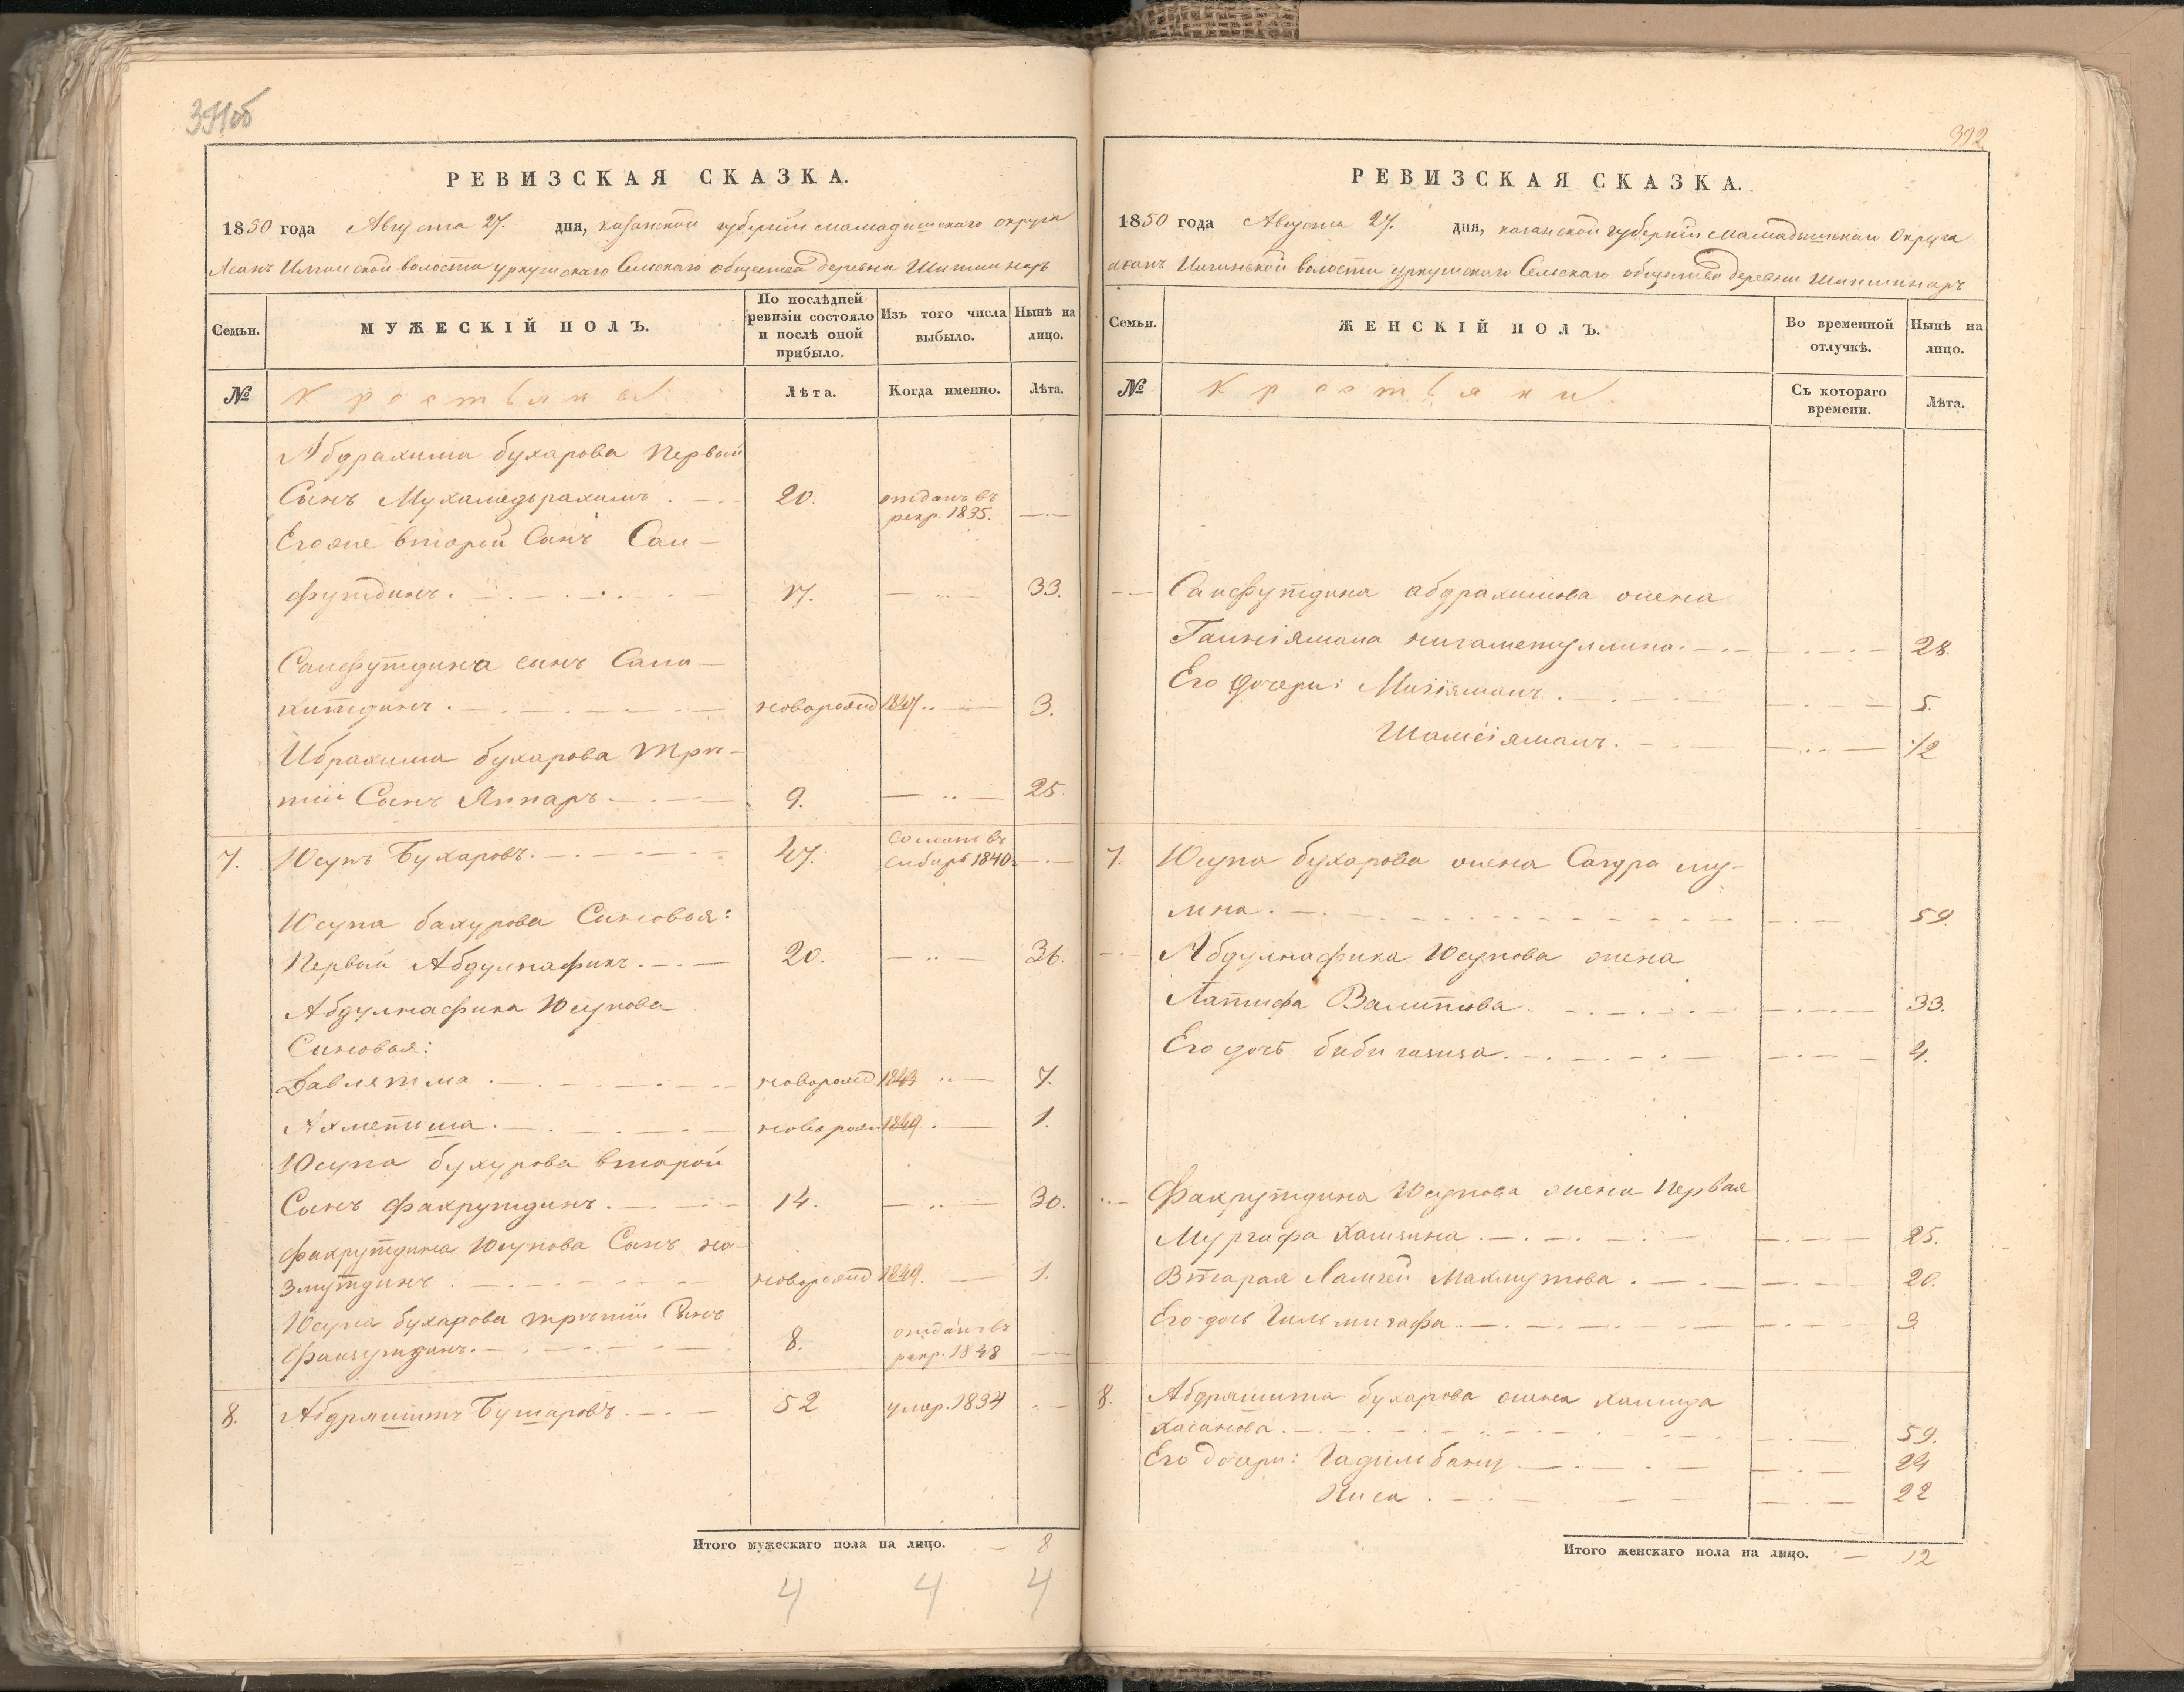 391об
РЕВИЗСКАЯ СКАЗКА.
1850 года Августа 27. дня, казанской губернии мамадышскаго округа
Асанъ Илгинской волости уркушскаго Сельскаго общества деревни Шипшинеръ
Семьи.
МУЖЕСКІЙ ПОЛЪ.
По послѣдней ревизіи состояло и послѣ оной прибыло.
Изъ того числа выбыло.
Нынѣ на лицо.
№
Крестьяне
Лѣта.
Когда именно.
Лѣта.
Абдрахима бухарова первый
Сынъ Мухамедьрахимъ 20. отданъ въ рекр. 1835.
Его же второй Сынъ Саи-
футдинъ. 17. 33.
Саифутдина сынъ Сала-
хитдинъ. новорожд 1847 3.
Ибрахима бухарова трѣ-
тий Сынъ Яппаръ 9. 25.
7. Юсупъ Бухаровъ. 47. сосланъ въ Сибирь 1840.
Юсупа бахурова Сыновья:
Первый Абдулнафикъ. 20. 36.
Абдулнафика Юсупова
Сыновья:
Давлятша новорожд. 1843 7.
Ахметша. новорож 1849 1.
Юсупа бухурова второй
Сынъ Фахрутдинъ. 14. 30.
Фахрутдина Юсупова Сынъ на-
змутдинъ. новорожд 1849. 1.
Юсупа бухарова трѣтий Сынъ
Фаизутдинъ. 8. отданъ въ рекр. 1848
8. Абдряшитъ Бушаровъ. 52 умер. 1834
Итого мужескаго пола на лицо. 8
4 4 4
392
РЕВИЗСКАЯ СКАЗКА.
1850 года Августа 27. дня, казанской губернии мамадышскаго Округа
асанъ Илгинской волости уркушскаго Сельскаго общества деревни Шипшинаръ
Семьи.
ЖЕНСКІЙ ПОЛЪ.
Во временной отлучкѣ.
Нынѣ на лицо.
№
Крестьяни
Съ котораго времени.
Лѣта.
Саифутдина абдрахимова жена
Гаиніямала нигаметуллина. 28.
Его дочери: Миніямалъ. 5.
Шамсіямалъ. 1/2
7. Юсупа бухарова жена Сагдра му-
мна. 59.
Абдулнафика Юсупова жена
Латифа Валитова. 33.
Его дочь бибигазиза. 4.
Фахрутдина Юсупова жена Первая
Мургафа Халитна. 25.
Вторая Ламгей Махмутова. 20.
Его дочь Гильмигафа. 3
8. Абдряшита бухарова жена халида
Хасанова. 59.
Его дочери: Гадильбану 24
Ниса. 22
Итого женскаго пола на лицо. 12